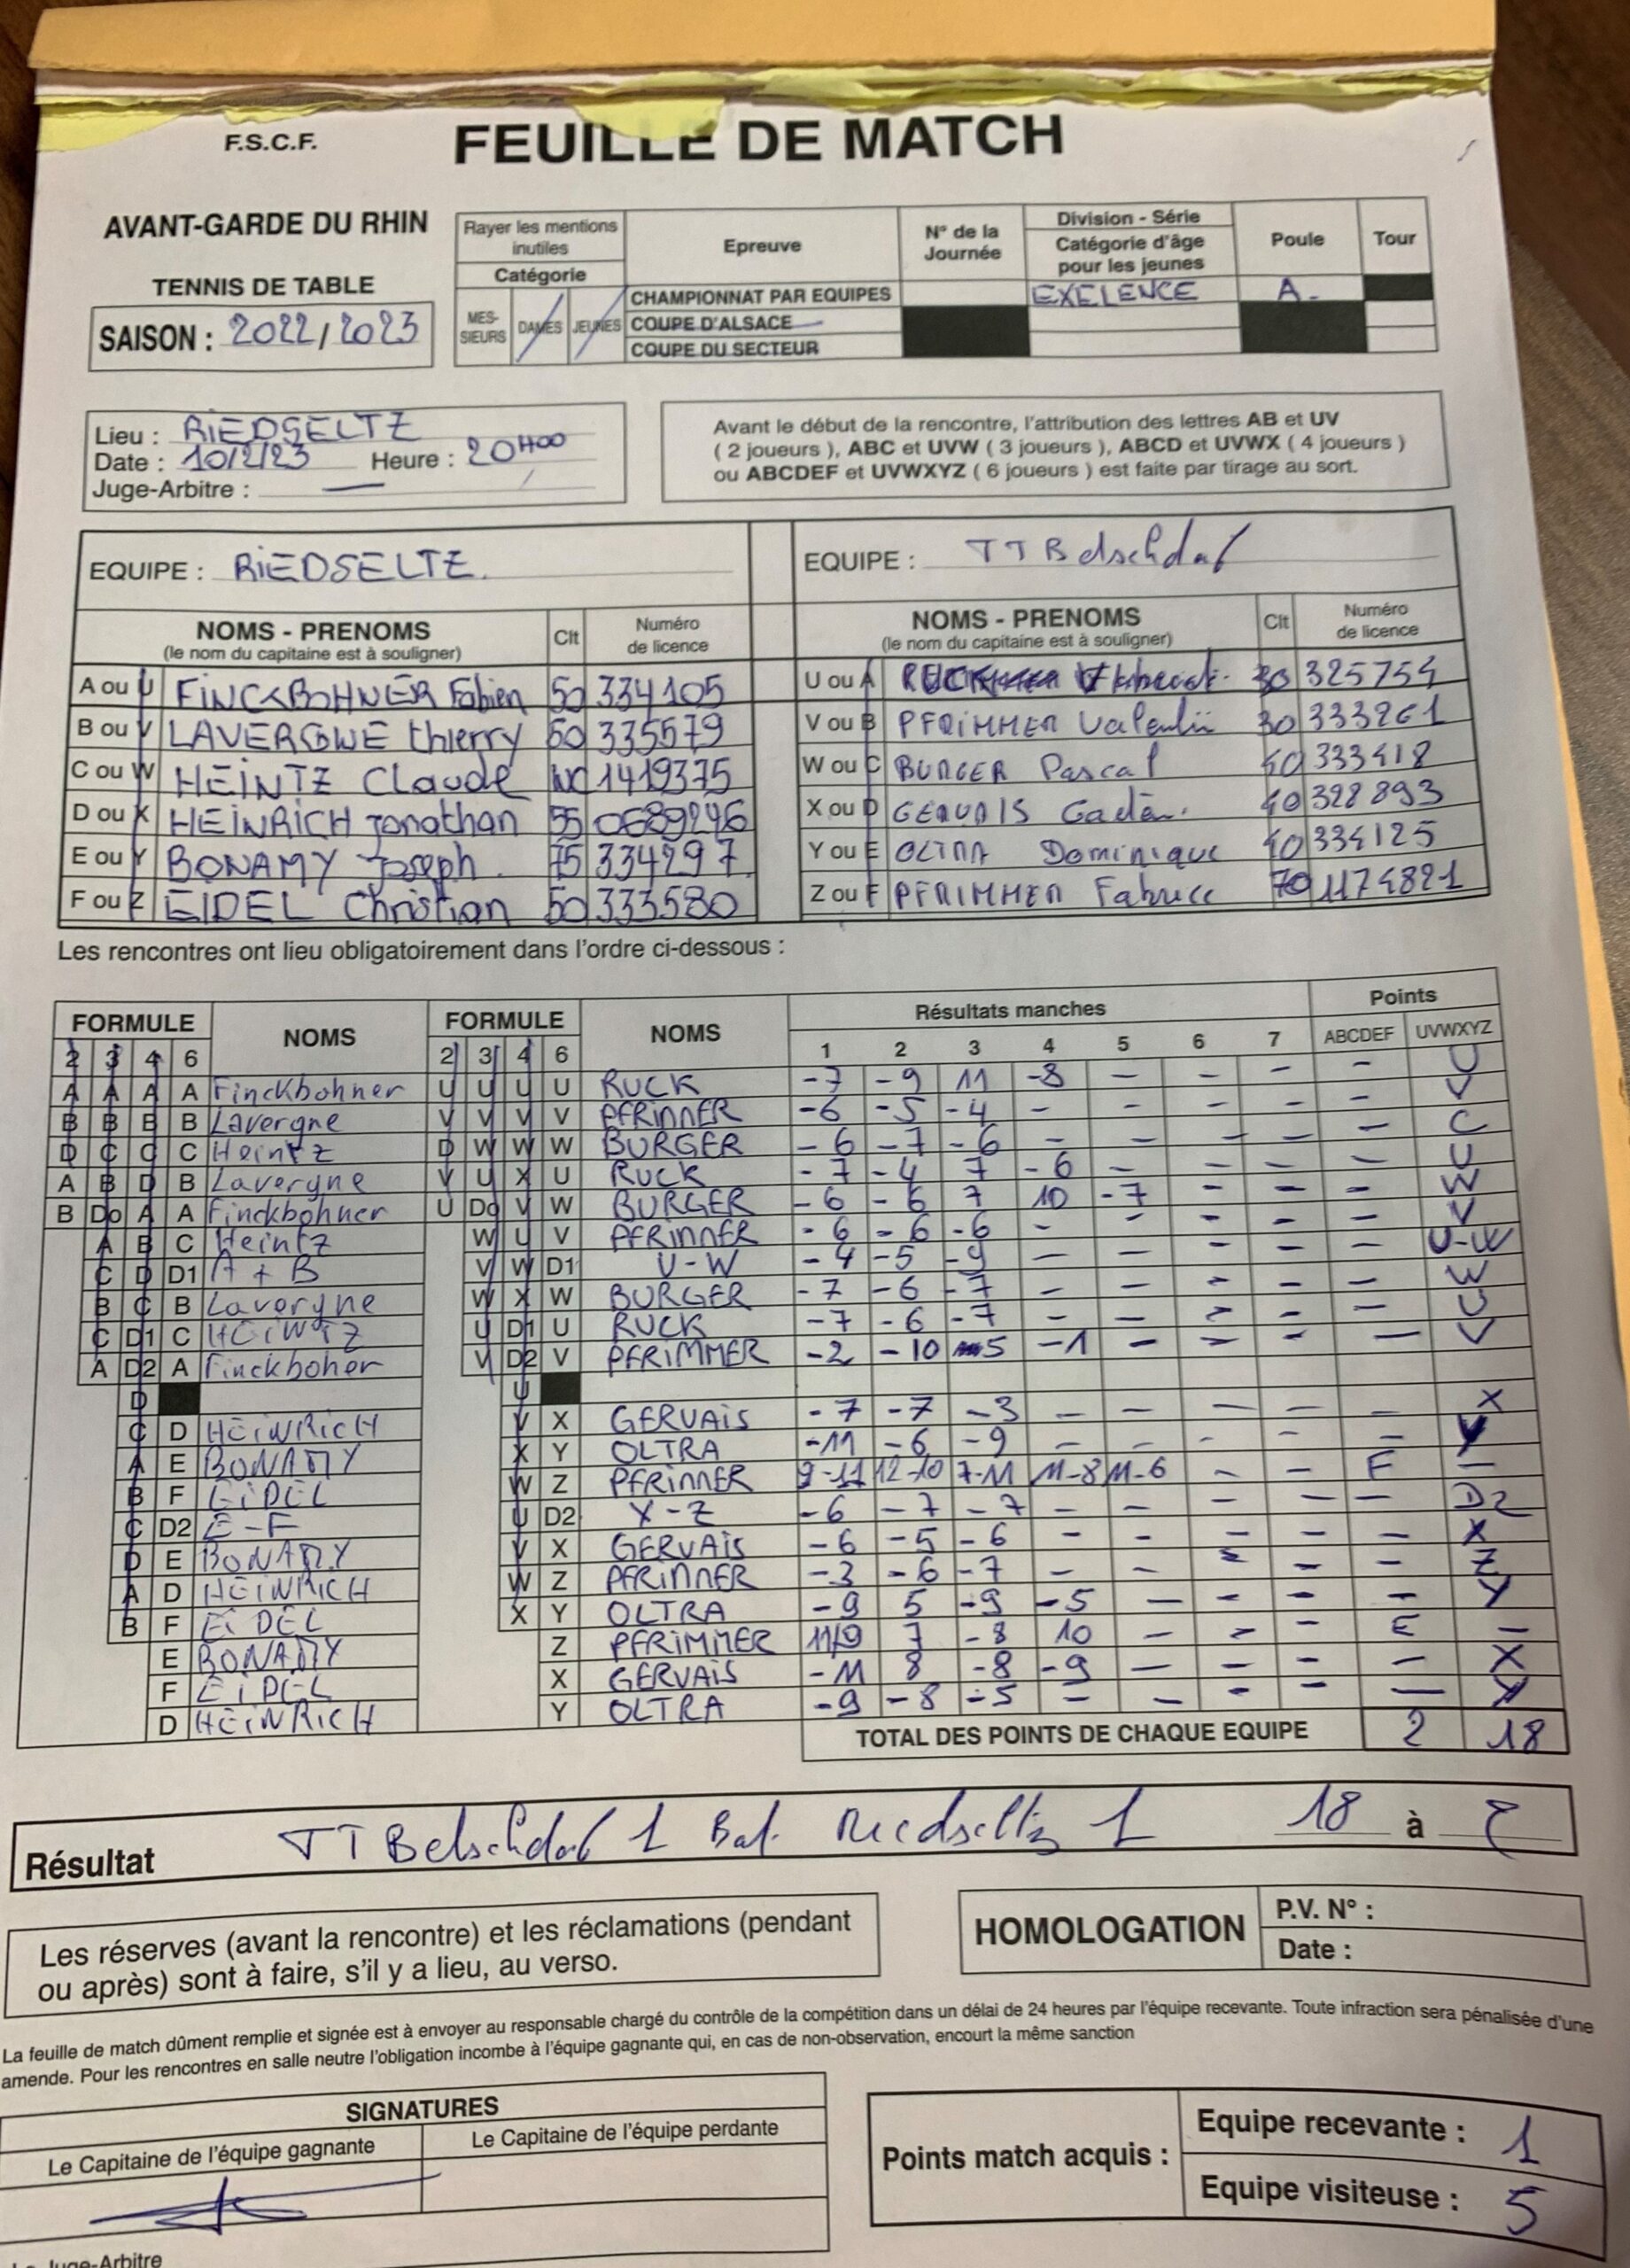 F.S.C.F.
FEUILLE DE MATCH
AVANT-GARDE DU RHIN
TENNIS DE TABLE
SAISON : 2022/2023
Rayer les mentions inutiles
Catégorie
MES-SIEURS DAMES JEUNES
Epreuve
N° de la Journée
Division - Série
Catégorie d'âge pour les jeunes
Poule
Tour
CHAMPIONNAT PAR EQUIPES EXELENCE A.
COUPE D'ALSACE
COUPE DU SECTEUR
Lieu : RIEDSELTZ
Date : 10/2/23 Heure : 20H00
Juge-Arbitre : —
Avant le début de la rencontre, l'attribution des lettres AB et UV
( 2 joueurs ), ABC et UVW ( 3 joueurs ), ABCD et UVWX ( 4 joueurs )
ou ABCDEF et UVWXYZ ( 6 joueurs ) est faite par tirage au sort.
EQUIPE : RIEDSELTZ.
EQUIPE : TT Betschdorf
NOMS - PRENOMS Clt Numéro de licence
(le nom du capitaine est à souligner)
NOMS - PRENOMS Clt Numéro de licence
(le nom du capitaine est à souligner)
A ou U FINCKBOHNER Fabien 50 334105
U ou A RUCK 30 325754
B ou V LAVERGNE thierry 60 335579
V ou B PFRIMMER Valentin 30 333261
C ou W HEINTZ Claude NC 1419375
W ou C BURGER Pascal 40 333418
D ou X HEINRICH Jonathan 55 0689296
X ou D GERVAIS Gaetan 40 328893
E ou Y BONAMY Joseph 75 334297
Y ou E OLTRA Dominique 40 334125
F ou Z EIDEL Christian 50 333580
Z ou F PFRIMMER Fabrice 70 1174821
Les rencontres ont lieu obligatoirement dans l'ordre ci-dessous :
FORMULE NOMS FORMULE NOMS Résultats manches Points
2 3 4 6 2 3 4 6 1 2 3 4 5 6 7 ABCDEF UVWXYZ
A A A A Finckbohner U U U U RUCK -7 -9 11 -8 — — — — U
B B B B Lavergne V V V V PFRINNER -6 -5 -4 — — — — — V
D C C C Heintz D W W W BURGER -6 -7 -6 — — — — — C
A B D B Lavergne V U X U RUCK -7 -4 7 -6 — — — — U
B Do A A Finckbohner U Do V W BURGER -6 -6 7 10 -7 — — — W
A B C Heintz W U V PFRINNER -6 -6 -6 — — — — — V
C D D1 A + B V W D1 U-W -4 -5 -9 — — — — — U-W
B C B Lavergne W X W BURGER -7 -6 -7 — — — — — W
C D1 C HEINTZ U D1 U RUCK -7 -6 -7 — — — — — U
A D2 A Finckboher V D2 V PFRIMMER -2 -10 5 -1 — — — — V
D U
C D HEINRICH V X GERVAIS -7 -7 -3 — — — — — X
A E BONAMY X Y OLTRA -11 -6 -9 — — — — — Y
B F EIDEL W Z PFRINNER 9-11 12-10 7-11 11-8 11-6 — — F —
C D2 E-F U D2 X-Z -6 -7 -7 — — — — — D2
D E BONAMY V X GERVAIS -6 -5 -6 — — — — — X
A D HEINRICH W Z PFRINNER -3 -6 -7 — — — — — Z
B F EIDEL X Y OLTRA -9 5 -9 -5 — — — — Y
E BONAMY Z PFRIMMER 11/9 7 -8 10 — — — E —
F EIDEL X GERVAIS -11 8 -8 -9 — — — — X
D HEINRICH Y OLTRA -9 -8 -5 — — — — — Y
TOTAL DES POINTS DE CHAQUE EQUIPE 2 18
Résultat TT Betschdorf 1 Bat. Riedseltz 1 18 à 2
Les réserves (avant la rencontre) et les réclamations (pendant
ou après) sont à faire, s'il y a lieu, au verso.
HOMOLOGATION
P.V. N° :
Date :
La feuille de match dûment remplie et signée est à envoyer au responsable chargé du contrôle de la compétition dans un délai de 24 heures par l'équipe recevante. Toute infraction sera pénalisée d'une
amende. Pour les rencontres en salle neutre l'obligation incombe à l'équipe gagnante qui, en cas de non-observation, encourt la même sanction
SIGNATURES
Le Capitaine de l'équipe gagnante
Le Capitaine de l'équipe perdante
Points match acquis :
Equipe recevante : 1
Equipe visiteuse : 5
Juge-Arbitre